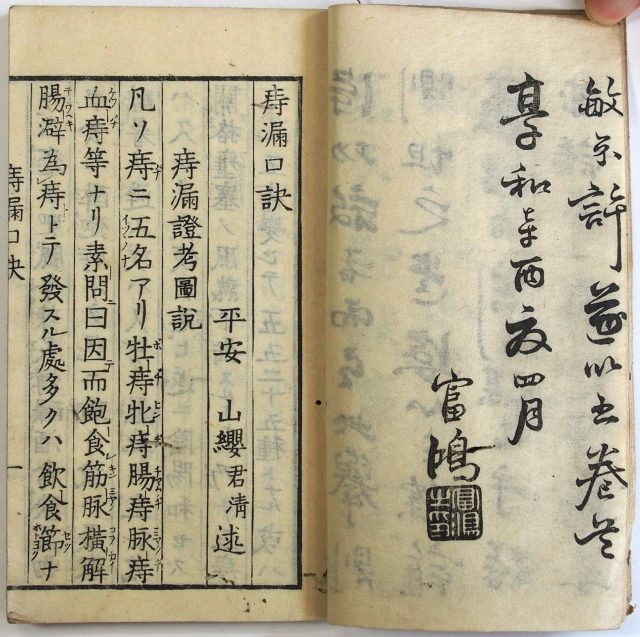 敏求許遂以上巻云
享和辛酉夏四月
富鴻
痔漏口訣
平安 山纓君清述
痔漏證考圖說
凡ソ痔ニ五名アリ牡痔牝痔腸痔脉痔
血痔等ナリ素問ニ曰因テ而飽食筋脉横解
腸澼為痔トニテ發スル處多クハ飲食節ナ
痔漏口訣
一